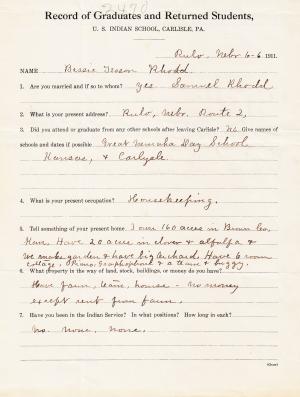 2470
Record of Graduates and Returned Students,
U. S. INDIAN SCHOOL, CARLISLE, PA.
Rulo, Nebr 6-6 1911.
NAME Bessie Tesson Rhodd
1. Are you married and if so to whom? Yes. Samuel Rhodd
2. What is your present address? Rulo, Nebr. Route 2,
3. Did you attend or graduate from any other schools after leaving Carlisle? No Give names of
schools and dates if possible Great Nemaha Day School
Kansas, & Carlysle.
4. What is your present occupation? Housekeeping.
5. Tell something of your present home. I own 160 acres in Brown Co,
Kan. Have 20 acres in clover & alfalfa &
we make garden & have big orchard. Have 6 room
cottage, Piano, Graphophone & a team & buggy.
6. What property in the way of land, stock, buildings, or money do you have?
Have farm, team, house - no money
except rent from farm.
7. Have you been in the Indian Service? In what positions? How long in each?
No. none, none.
(Over)